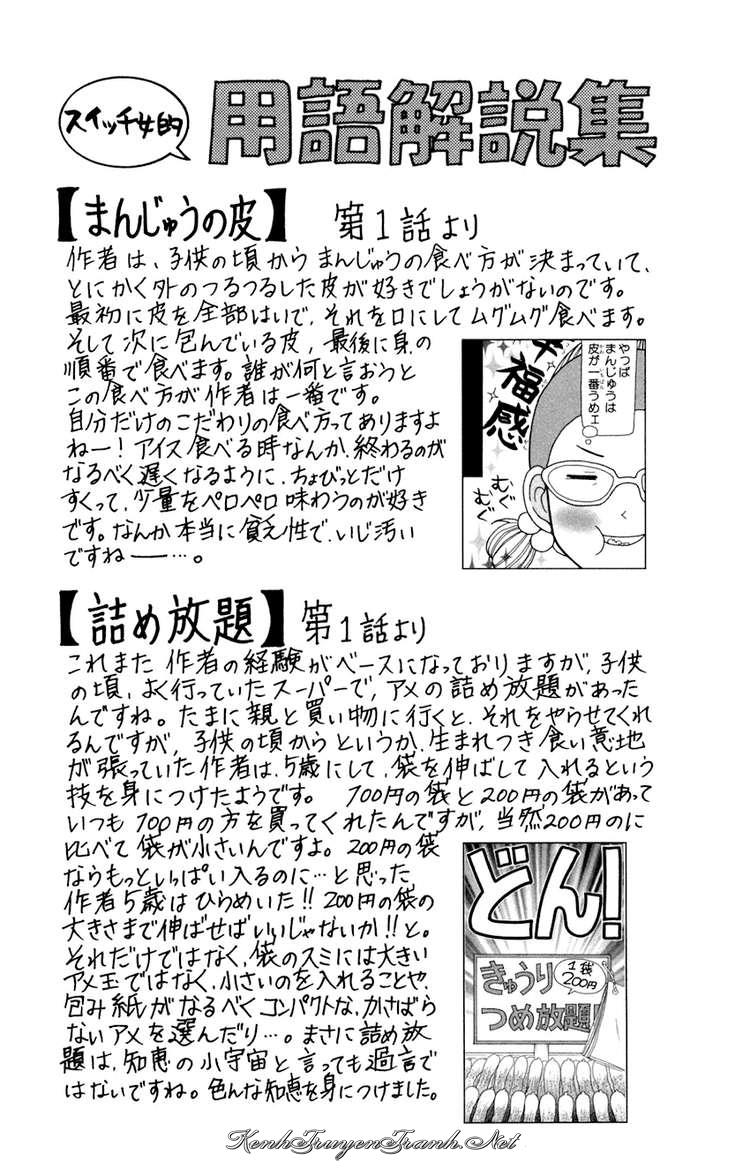 スイッチ女的
用語解説集
【まんじゅうの皮】 第1話より
作者は、子供の頃からまんじゅうの食べ方が決まっていて、
とにかく外のつるつるした皮が好きでしょうがないのです。
最初に皮を全部はいで、それを口にしてムグムグ食べます。
そして次に包んでいる皮、最後に身の
順番で食べます。誰が何と言おうと
この食べ方が作者は一番です。
自分だけのこだわりの食べ方ってありますよ
ねー!アイス食べる時なんか、終わるのが
なるべく遅くなるように、ちょびっとだけ
すくって、少量をペロペロ味わうのが好き
です。なんか本当に貧乏性で、いじ汚い
ですねー…。
やっぱ
まんじゅうは
皮が一番うめェ
福感
むぐ
むぐ
【詰め放題】 第1話より
これまた作者の経験がベースになっておりますが、子供
の頃、よく行っていたスーパーで、アメの詰め放題があった
んですね。たまに親と買い物に行くと、それをやらせてくれ
るんですが、子供の頃からというか、生まれつき食い意地
が張っていた作者は、5歳にして、袋を伸ばして入れるという
技を身につけたようです。 100円の袋と200円の袋があって
いつも100円の方を買ってくれたんですが、当然200円のに
比べて袋が小さいんですよ。200円の袋
ならもっといっぱい入るのに…と思った
作者5歳はひらめいた!!200円の袋の
大きさまで伸ばせばいいじゃないか!!と。
それだけではなく、袋のスミには大きい
アメ玉ではなく、小さいのを入れることや、
包み紙がなるべくコンパクトな、かさばら
ないアメを選んだり…。まさに詰め放
題は、知恵の小宇宙と言っても過言で
はないですね。色んな知恵を身につけました。
どん!
きゅうり
つめ放題!
1袋
200円
KenhTruyenTranh.Net